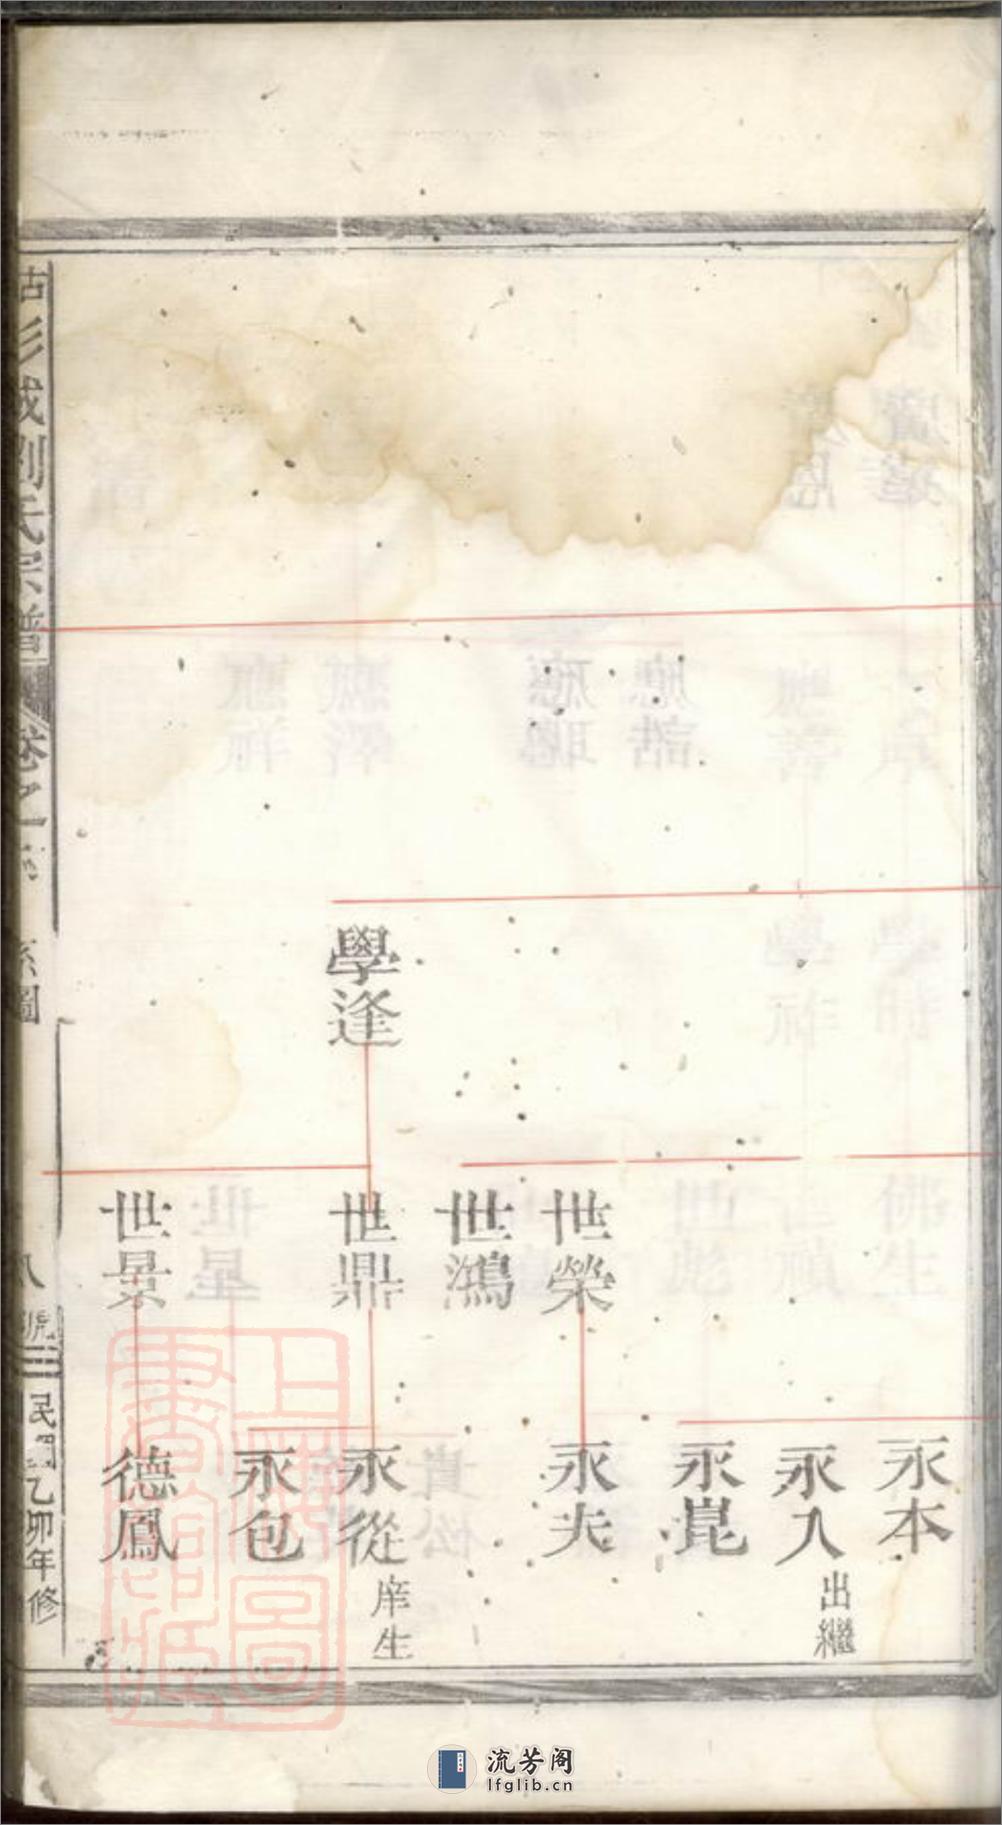 學逢
世榮
世鴻
世鼎
世景
永本
永入
出繼
永崑
永夫
永從
庠生
永包
德鳳
彭城劉氏宗譜
卷之一
系圖
八
號
三
民國乙卯年修
上海圖書館藏
流芳阁
lfglib.cn